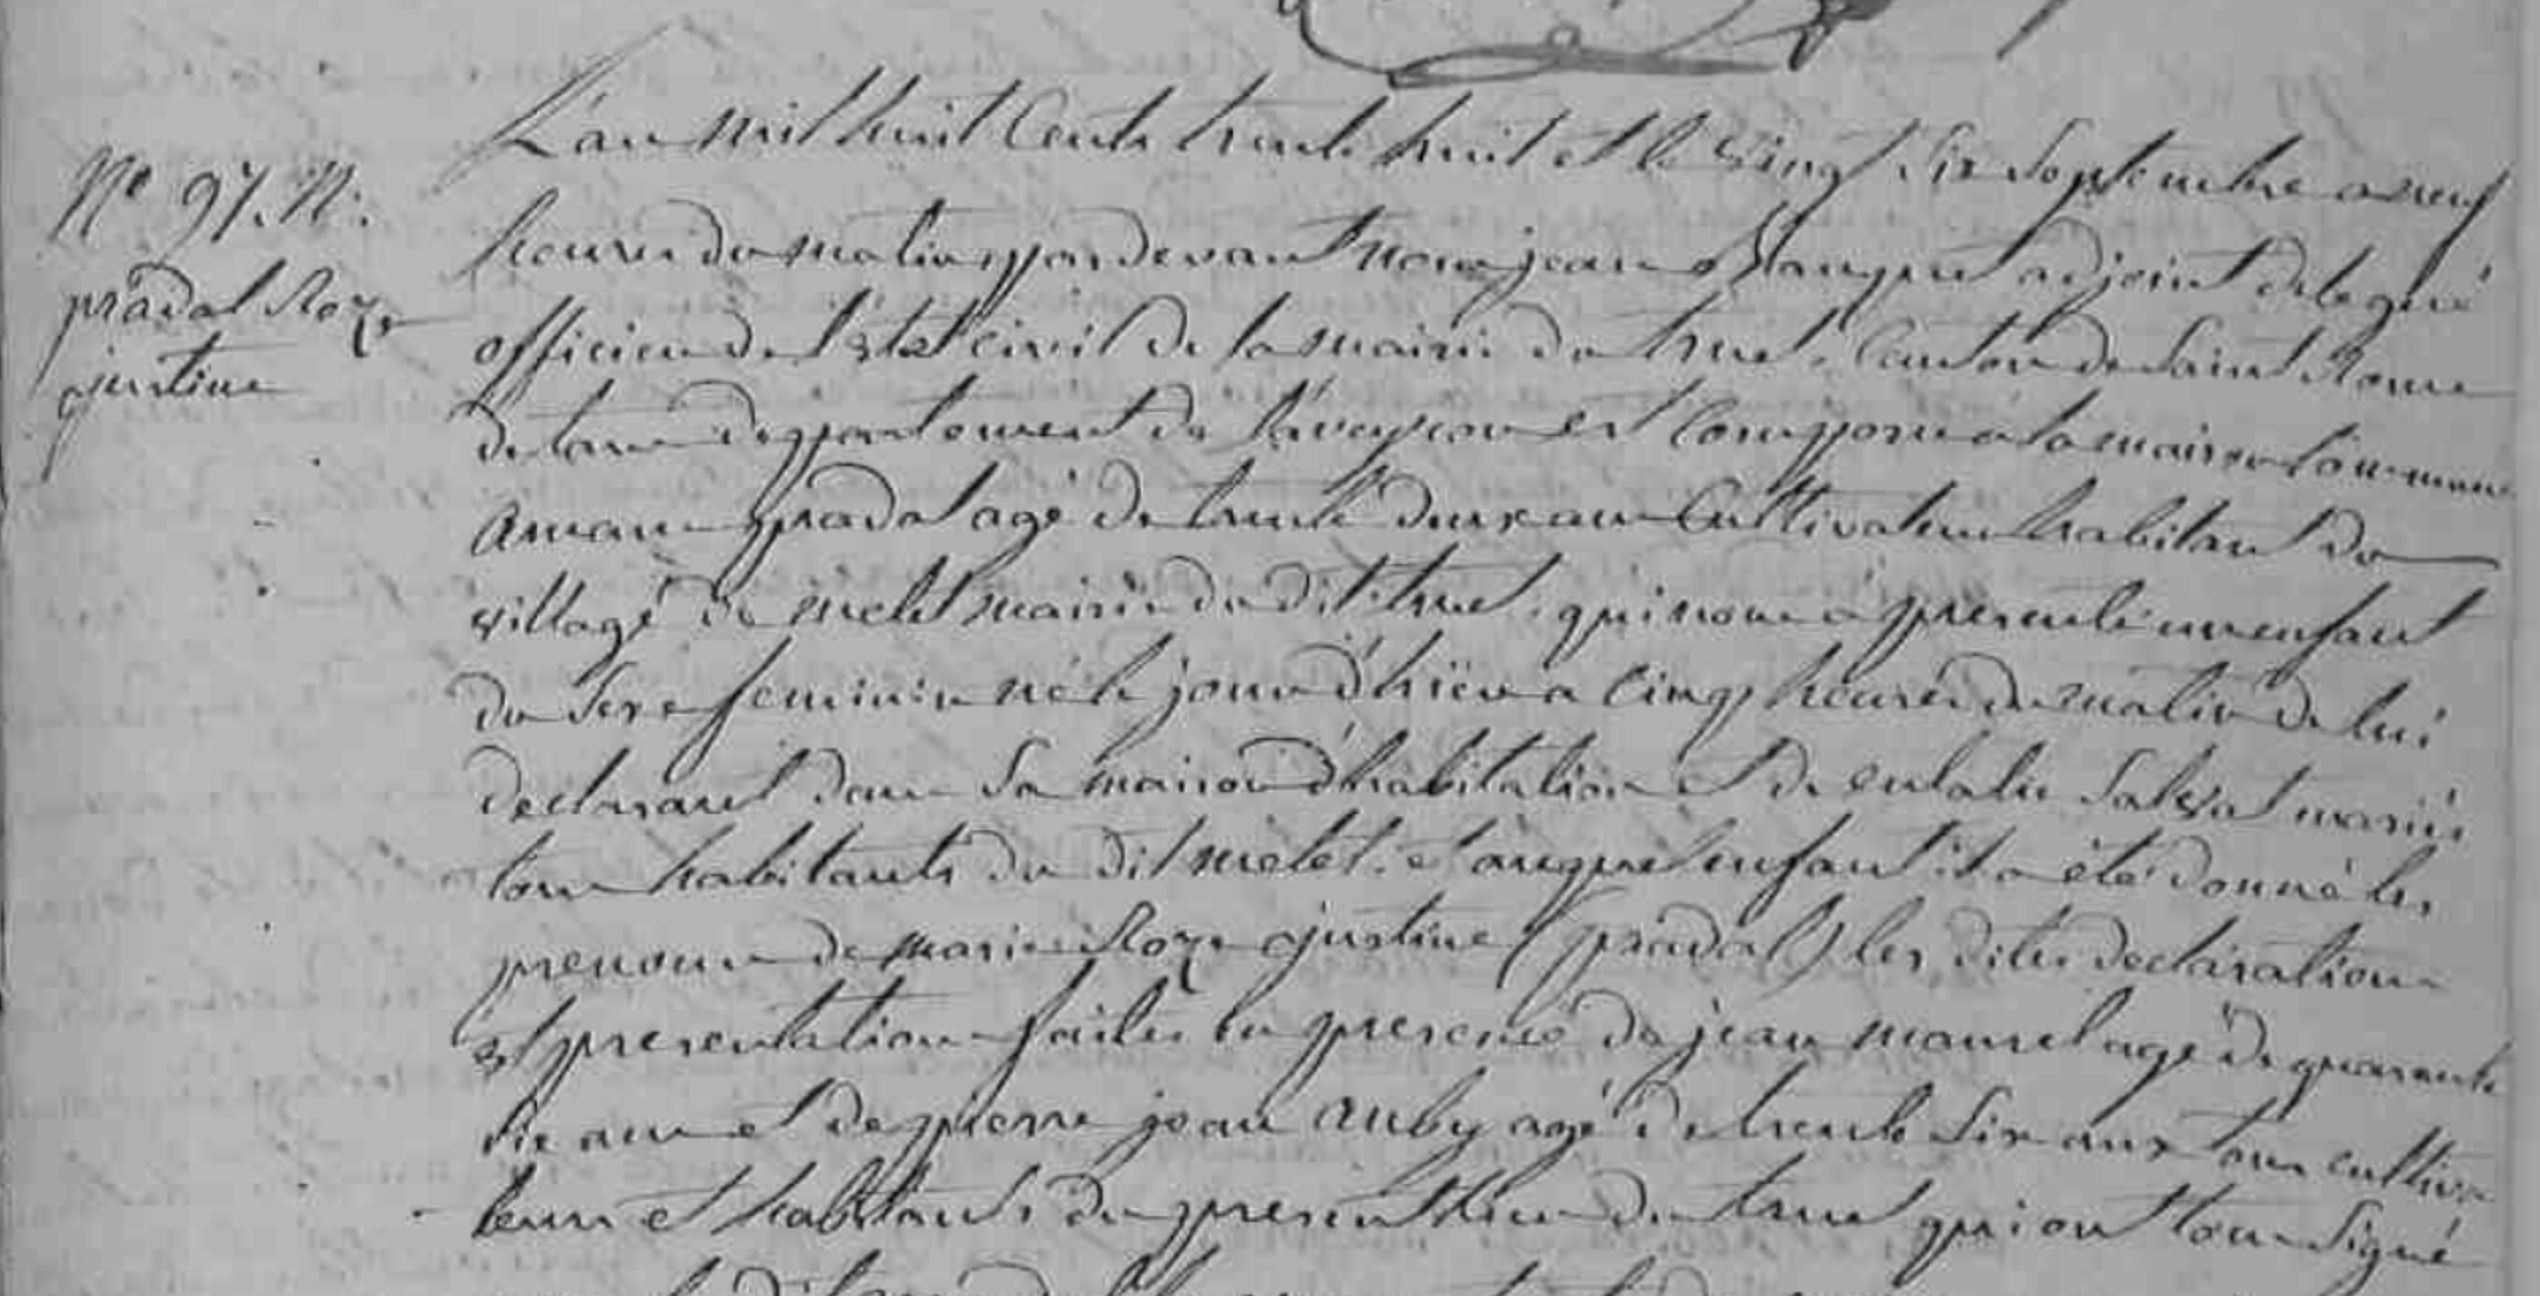 N° 97. N.
pradal Roze
justine
L'an mil huit Cents trente huit et le vingt Six Septembre a neuf
heures du matin par devant nous jean adjoint delegué
officier de l'état civil de la mairie du truel, Canton de Saint Rome
de tarn departement de l'aveyron est comparu a la maison commune
amans pradal agé de trente deux ans Cultivateur habitant du
village de melet mairie du dit truel, qui nous a presenté un enfant
du Sexe feminin né le jour d'hier a Cinq heures du matin de lui
declarant dans Sa maison d'habitation et de eulalie Salvat mariés
tous habitants du dit melet. et auquel enfant il a été donné les
prenoms de marie Roze justine (pradal) les dites declaration
et presentation faites en presence de jean maurel agé de quarante
six ans et de pierre jean auby agé de trente Six ans tous cultiva
teurs et habitants du present lieu du truel qui ont tous Signé